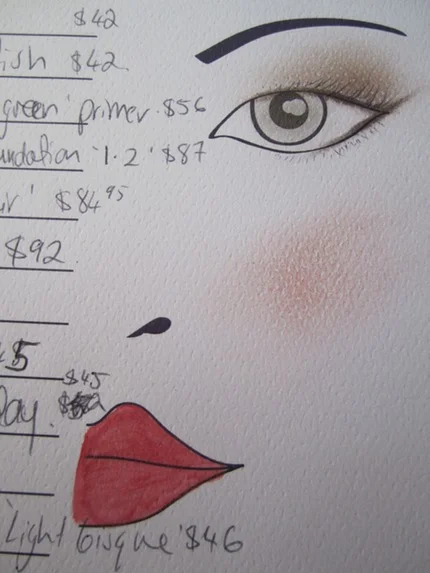 $42
ish $42
green' primer $56
undation '1.2' $87
ur' $84⁹⁵
$92
45
$45
Day.
'Light bisque' $46